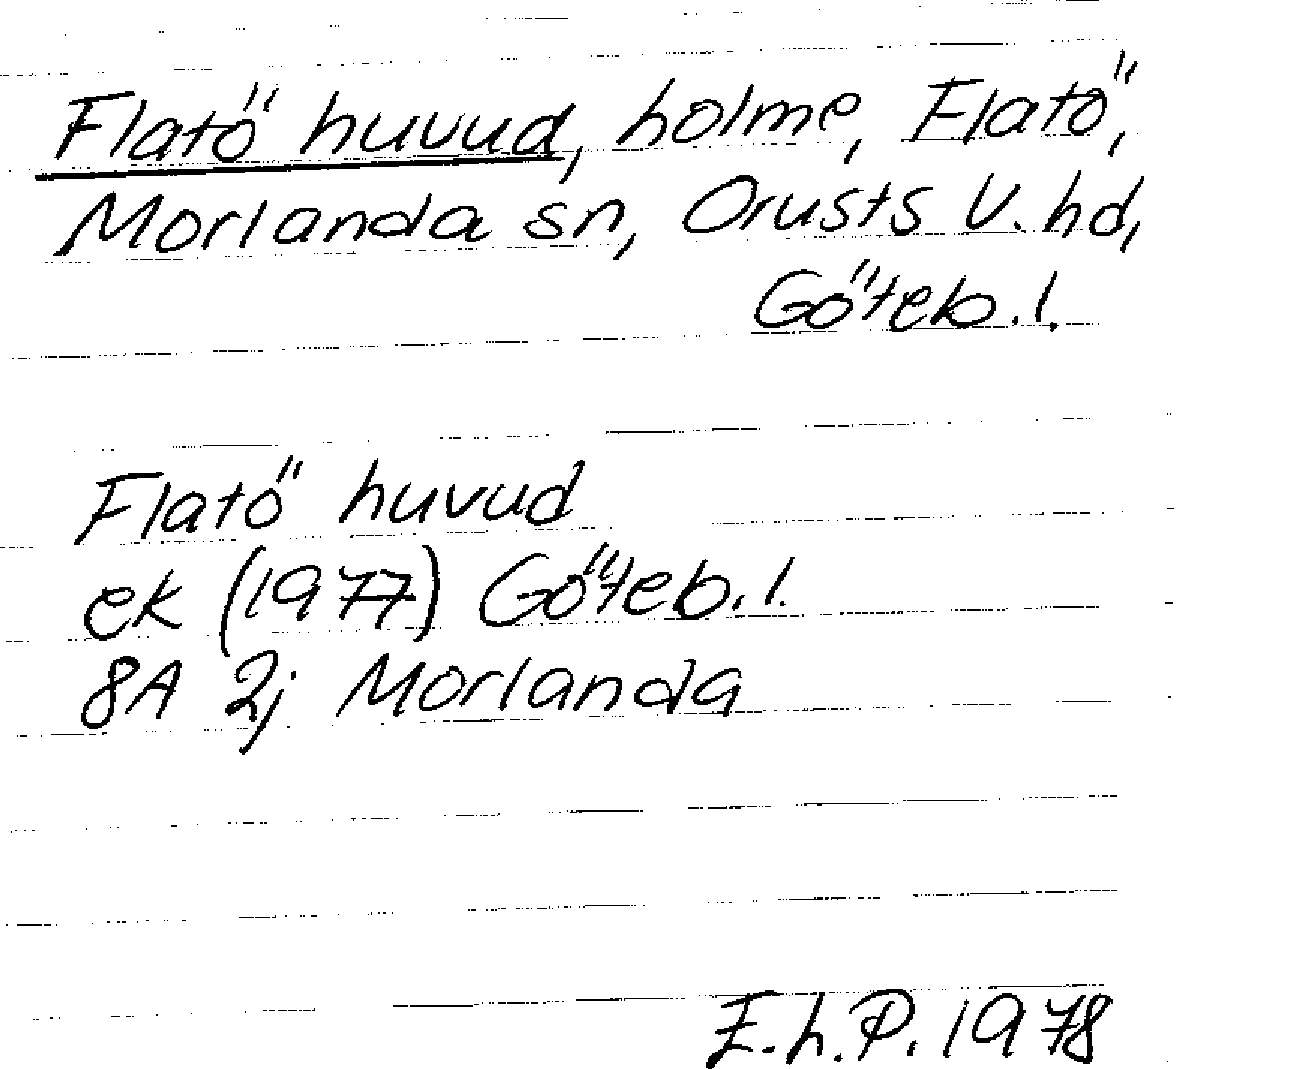 Flatö huvud, holme, Flatö,
Morlanda sn, Orusts V. hd,
Göteb. l.
Flatö huvud
ek (1977) Göteb. l.
8A 2j Morlanda
E.h.P. 1978